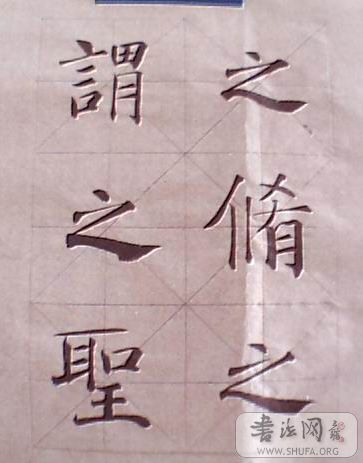 之脩之
謂之聖
书法网
WWW.SHUFA.ORG